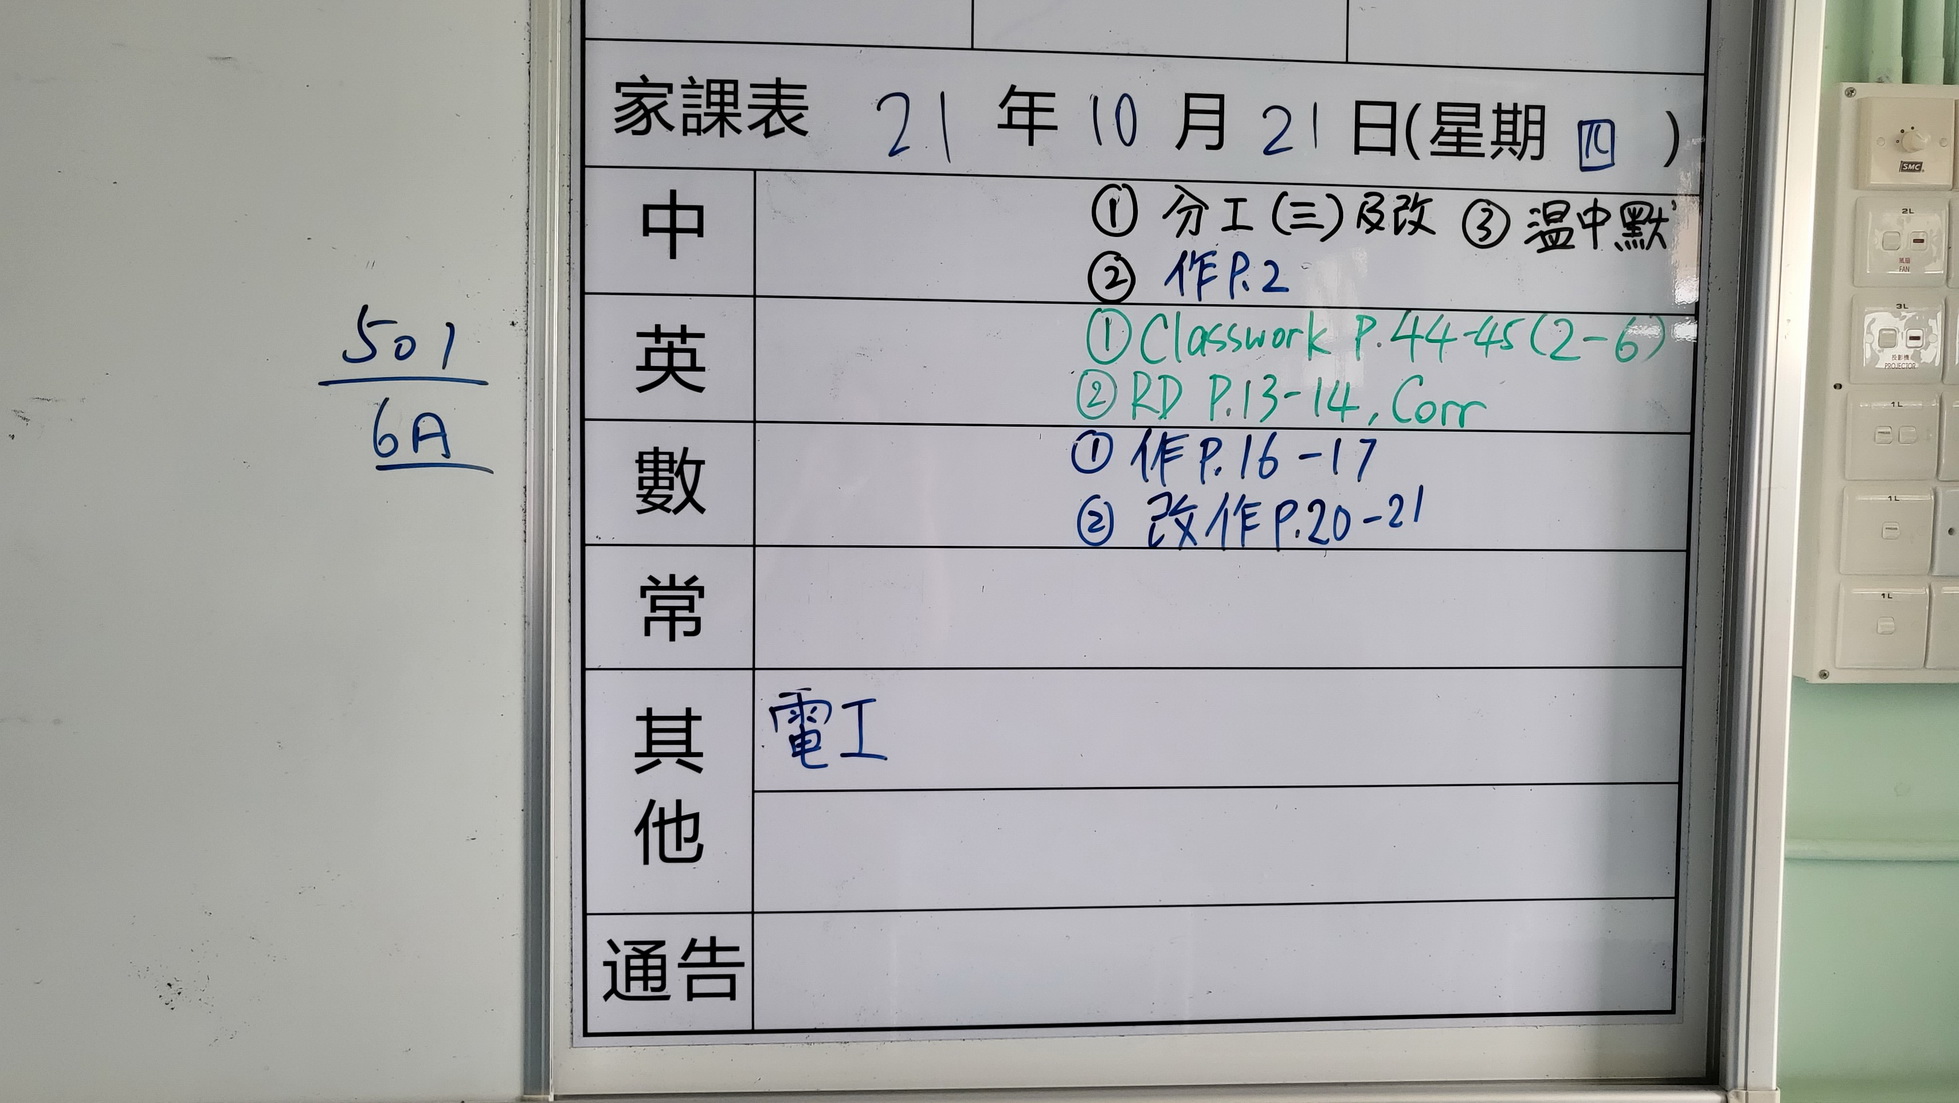 家課表 21 年 10 月 21 日(星期 四 )
中
① 分工(三)及改 ③ 温中默
② 作P.2
英
① Classwork P.44-45(2-6)
② RD P.13-14, Corr
數
① 作P.16-17
② 改作P.20-21
常
其他
電工
通告
501
6A
SMC
2L
風扇
FAN
3L
投影機
PROJECTOR
1L
1L
1L